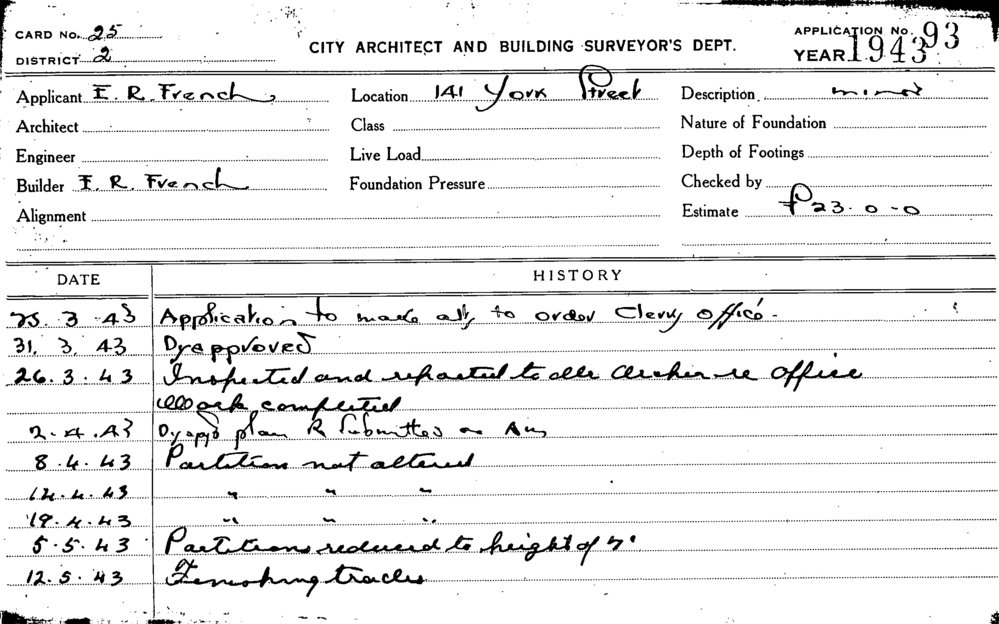 CARD No. 25
DISTRICT 2
CITY ARCHITECT AND BUILDING SURVEYOR'S DEPT.
APPLICATION No. 93
YEAR 1943
Applicant E. R. French Location 141 York Street Description minor
Architect Class Nature of Foundation
Engineer Live Load Depth of Footings
Builder E. R. French Foundation Pressure Checked by
Alignment Estimate £23-0-0
DATE HISTORY
25. 3. 43 Application to make to order Clerk office.
31. 3. 43 Dyapproved
26. 3. 43 Inspected and reported to Mr Archer re office
Work completed
2. 4. 43 plan submitted
8. 4. 43 Partition not altered
12. 4. 43 " " "
19. 4. 43 " " "
5. 5. 43 Partitions reduced to height of 7'
12. 5. 43 Finishing trades